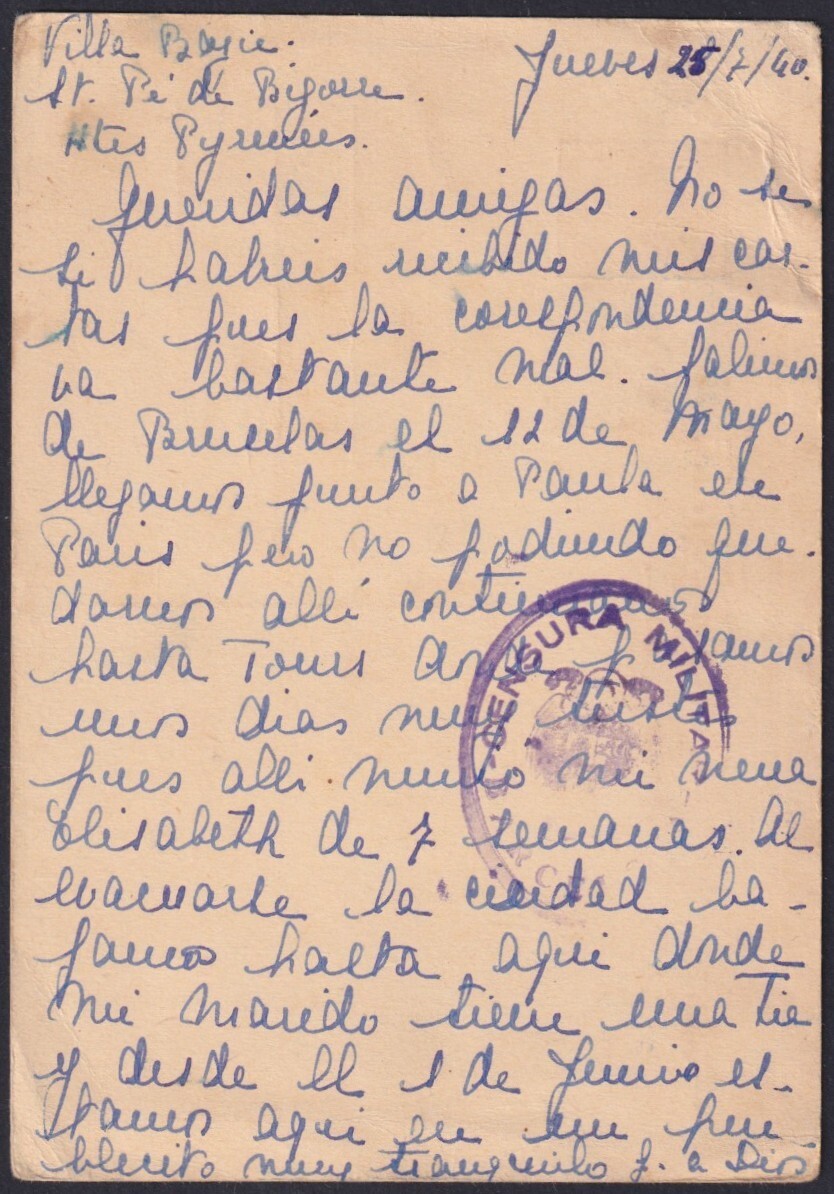 Villa
St. Pé de Bigorre.
Htes Pyrenées.
Jueves 25/7/40.
Queridas amigas. No se
si habreis recibido mis car-
tas pues la corespondencia
va bastante mal. Salimos
de Bruselas el 12 de Mayo,
llegamos junto a Paula en
Paris pero no podiendo que-
darnos alli continuamos
hasta Tours donde pasamos
unos dias muy tristes
pues alli murio mi nena
Elisabeth de 7 semanas. Al
evacuarse la ciudad ba-
jamos hasta aqui donde
mi marido tiene una tia
y desde el 1 de Junio es-
tamos aqui en un pue-
blecito muy tranquilo g. a Dios
CENSURA MILITAR